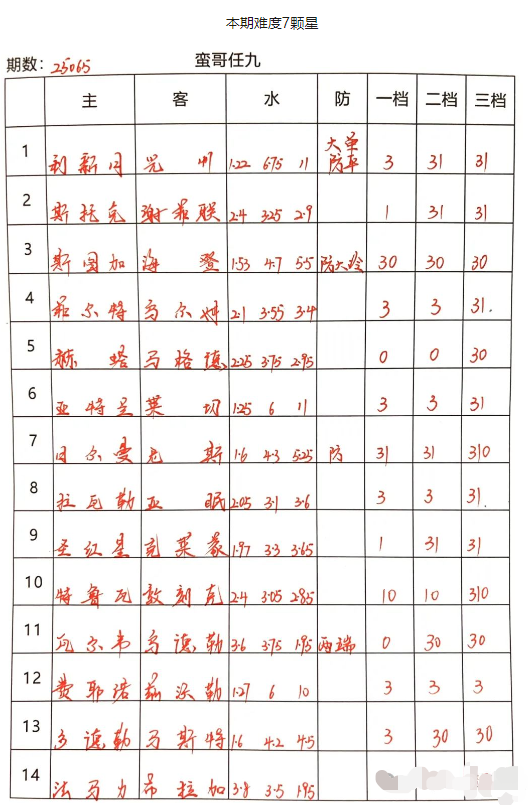 本期难度7颗星
期数: 25065 蛮哥任九
主 客 水 防 一档 二档 三档
1 利新月 兄州 1.22 6.75 11 大单防平 3 31 31
2 斯托克 谢菲联 2.4 3.25 2.9 1 31 31
3 斯图加 海登 1.53 4.7 5.5 防大冷 30 30 30
4 菲尔特 乌尔姆 2.1 3.55 3.4 3 3 31.
5 赫塔 马格德 2.25 3.75 2.95 0 0 30
6 亚特兰 莱切 1.25 6 11 3 3 31
7 日尔曼 尼斯 1.6 4.3 5.25 防 31 31 310
8 拉瓦勒 亚眠 2.05 3.1 3.6 3 3 31.
9 圣红星 克莱蒙 1.97 3.3 3.65 1 31 31
10 特鲁瓦 敦刻克 2.4 3.05 2.85 10 10 310
11 瓦尔韦 乌德勒 3.6 3.75 1.95 两端 0 30 30
12 费耶诺 兹沃勒 1.27 6 10 3 3 3
13 多德勒 马斯特 1.6 4.2 4.5 3 30 30
14 法马力 布拉加 3.8 3.5 1.95